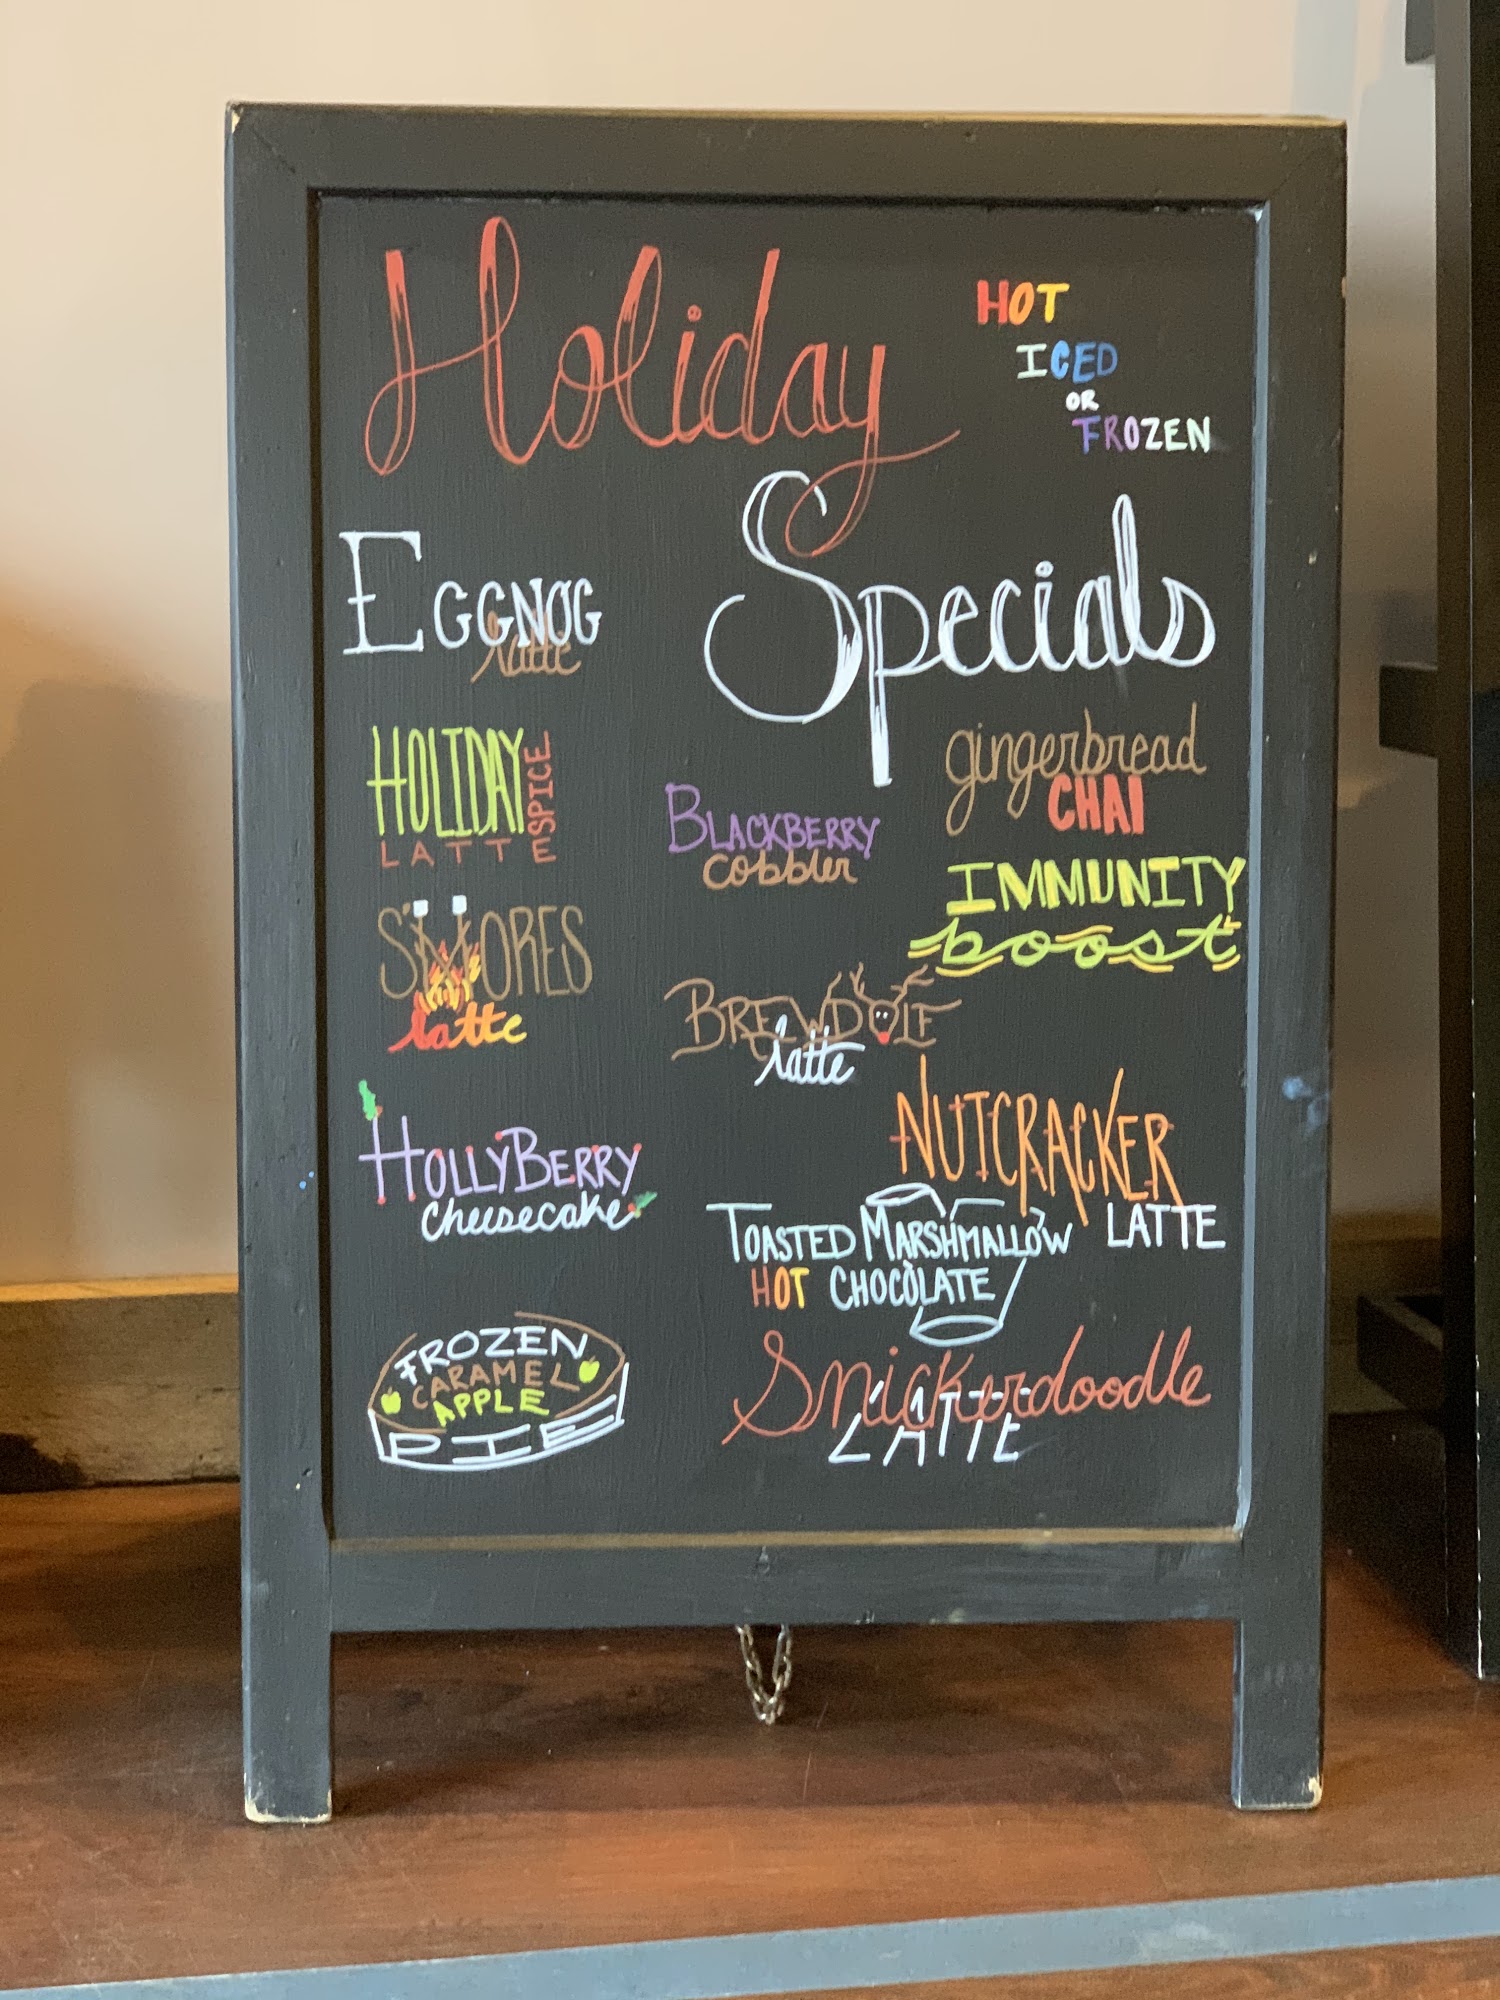 Holiday
Specials
HOT
ICED
OR
FROZEN
EGGNOG
latte
HOLIDAY
SPICE
LATTE
S'MORES
latte
HOLLYBERRY
cheesecake
FROZEN
CARAMEL
APPLE
PIE
BLACKBERRY
cobbler
BREWDOLF
latte
gingerbread
CHAI
IMMUNITY
boost
NUTCRACKER
LATTE
TOASTED MARSHMALLOW
HOT CHOCOLATE
Snickerdoodle
LATTE